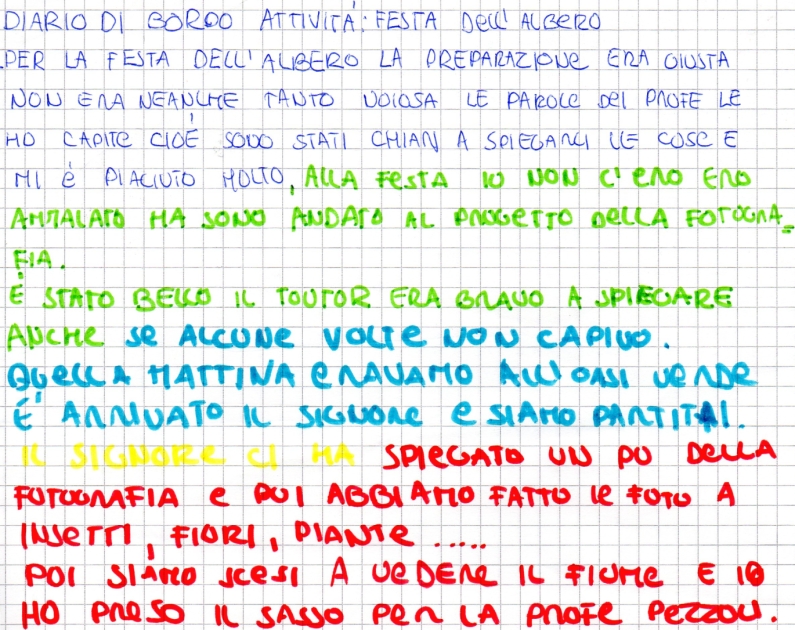 DIARIO DI BORDO ATTIVITÀ: FESTA Dell' ALBERO
PER LA FESTA DELL'ALBERO LA PREPARAZIONE ERA GIUSTA
NON ERA NEANCHE TANTO NOIOSA LE PAROLE DEI PROFE LE
HO CAPITE CIOÈ SONO STATI CHIARI A SPIEGARCI LE COSE E
MI È PIACIUTO MOLTO, ALLA FESTA IO NON C'ERO ERO
AMMALATO MA SONO ANDATO AL PROGETTO DELLA FOTOGRA_
FIA.
È STATO BELLO IL TOUTOR ERA BRAVO A SPIEGARE
ANCHE SE ALCUNE VOLTE NON CAPIVO.
QUELLA MATTINA ERAVAMO ALL'OASI VERDE
È ARRIVATO IL SIGNORE E SIAMO PARTITI.
IL SIGNORE CI HA SPIEGATO UN PO DELLA
FOTOGRAFIA E POI ABBIAMO FATTO LE FOTO A
INSETTI, FIORI, PIANTE .....
POI SIAMO SCESI A VEDERE IL FIUME E IO
HO PRESO IL SASSO PER LA PROFE PEZZOLI.